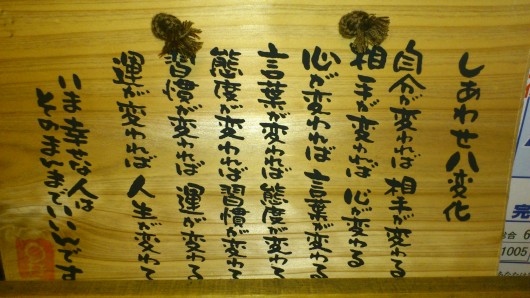 しあわせ八変化
自分が変われば 相手が変わる
相手が変われば 心が変わる
心が変われば 言葉が変わる
言葉が変われば 態度が変わる
態度が変われば 習慣が変わる
習慣が変われば 運が変わる
運が変われば 人生が変わる
いま幸せな人は
そのまんまでいいんです
完
総合 6
1005